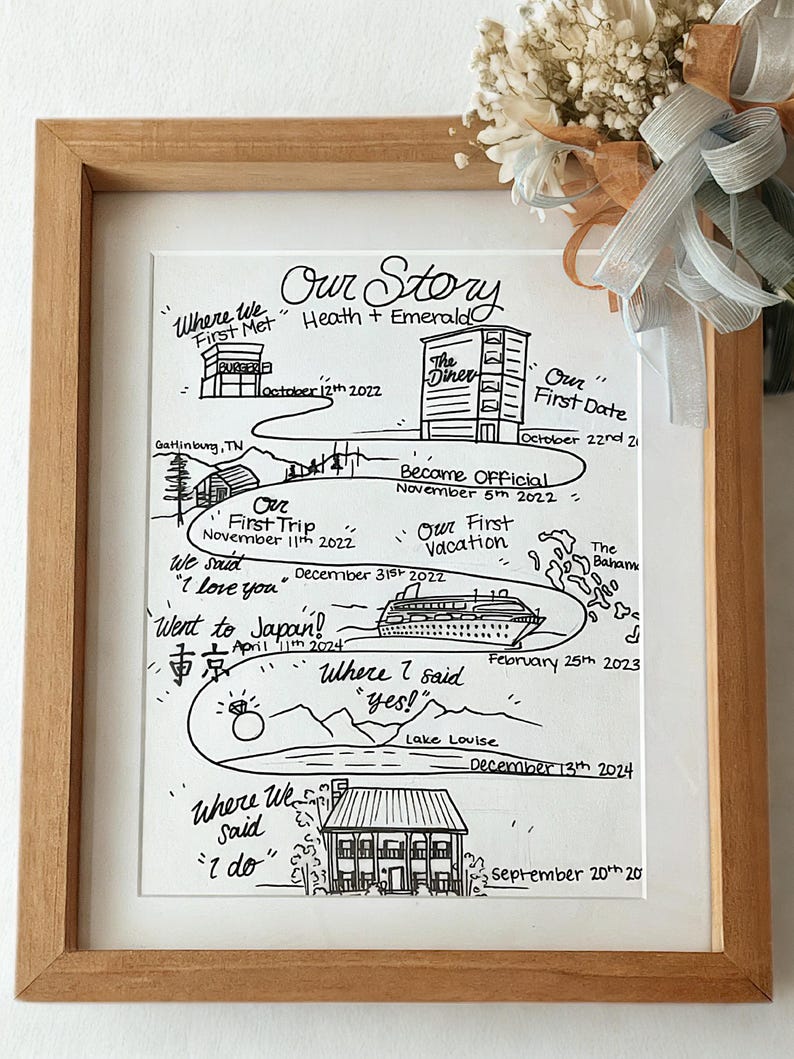 Our Story
Heath + Emerald
"Where We
First Met"
BURGER
October 12th 2022
The
Diner
Our
First Date
October 22nd 2
Gatlinburg, TN
Became Official
November 5th 2022
Our
First Trip
November 11th 2022
Our First
Vacation
The
Bahama
We said
"I love you"
December 31st 2022
Went to Japan!
April 11th 2024
東京
February 25th 2023
Where I said
"yes!"
Lake Louise
December 13th 2024
Where We
said
"I do"
September 20th 20